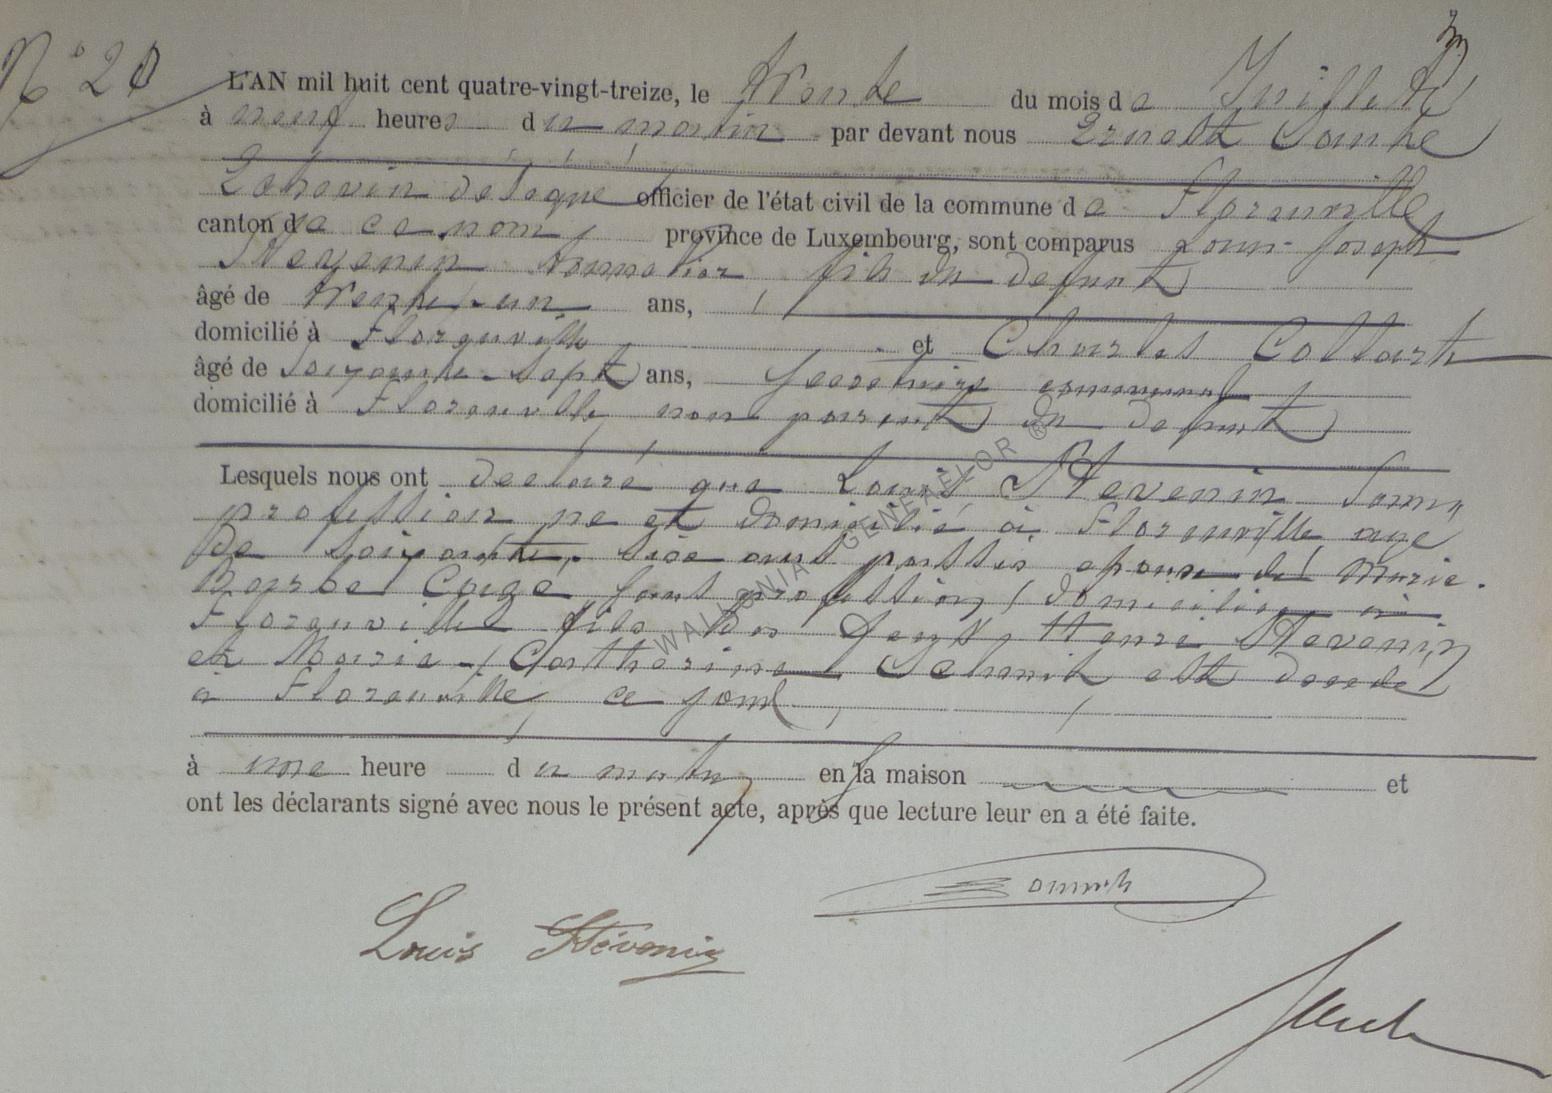 N° 20
L'AN mil huit cent quatre-vingt-treize, le trente du mois de Juillet
à neuf heures du matin par devant nous Ernest
Echevin délégué officier de l'état civil de la commune de Florenville
canton de ce nom, province de Luxembourg, sont comparus Louis-Joseph
Stevenin tonnelier fils du defunt
âgé de trente-un ans,
domicilié à Florenville et Charles Collart
âgé de soixante-sept ans, Secrétaire communal
domicilié à Florenville non parent du defunt
Lesquels nous ont déclaré que Louis Stevenin sans
profession né et domicilié à Florenville agé
de soixante-six ans passés époux de Marie-
Barbe sans profession, domiciliée à
Florenville fils des Henri Stevenin
et Marie-Catherine Schmit est décédé
à Florenville, ce jour
à une heure du matin en la maison et
ont les déclarants signé avec nous le présent acte, après que lecture leur en a été faite.
Louis Stévenin
WALLONIA GENEAELOR ®